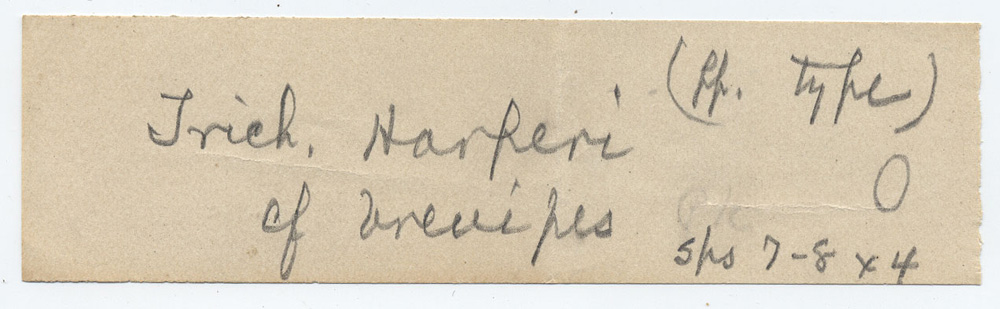 Trich. Harperi (pp. type)
cf brevipes
sps 7-8 x 4